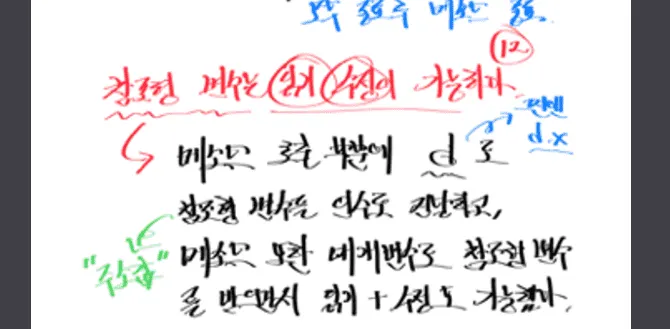 호출
⑫
참조형 변수는 읽기 수정이 가능하다.
메소드 호출 부분에 d로
반면엔
d.x
참조형 변수를 인수로 전달하고,
"주소값"
메소드 또한 매개변수로 참조형 변수
를 받으면서 읽기 + 수정도 가능했다.